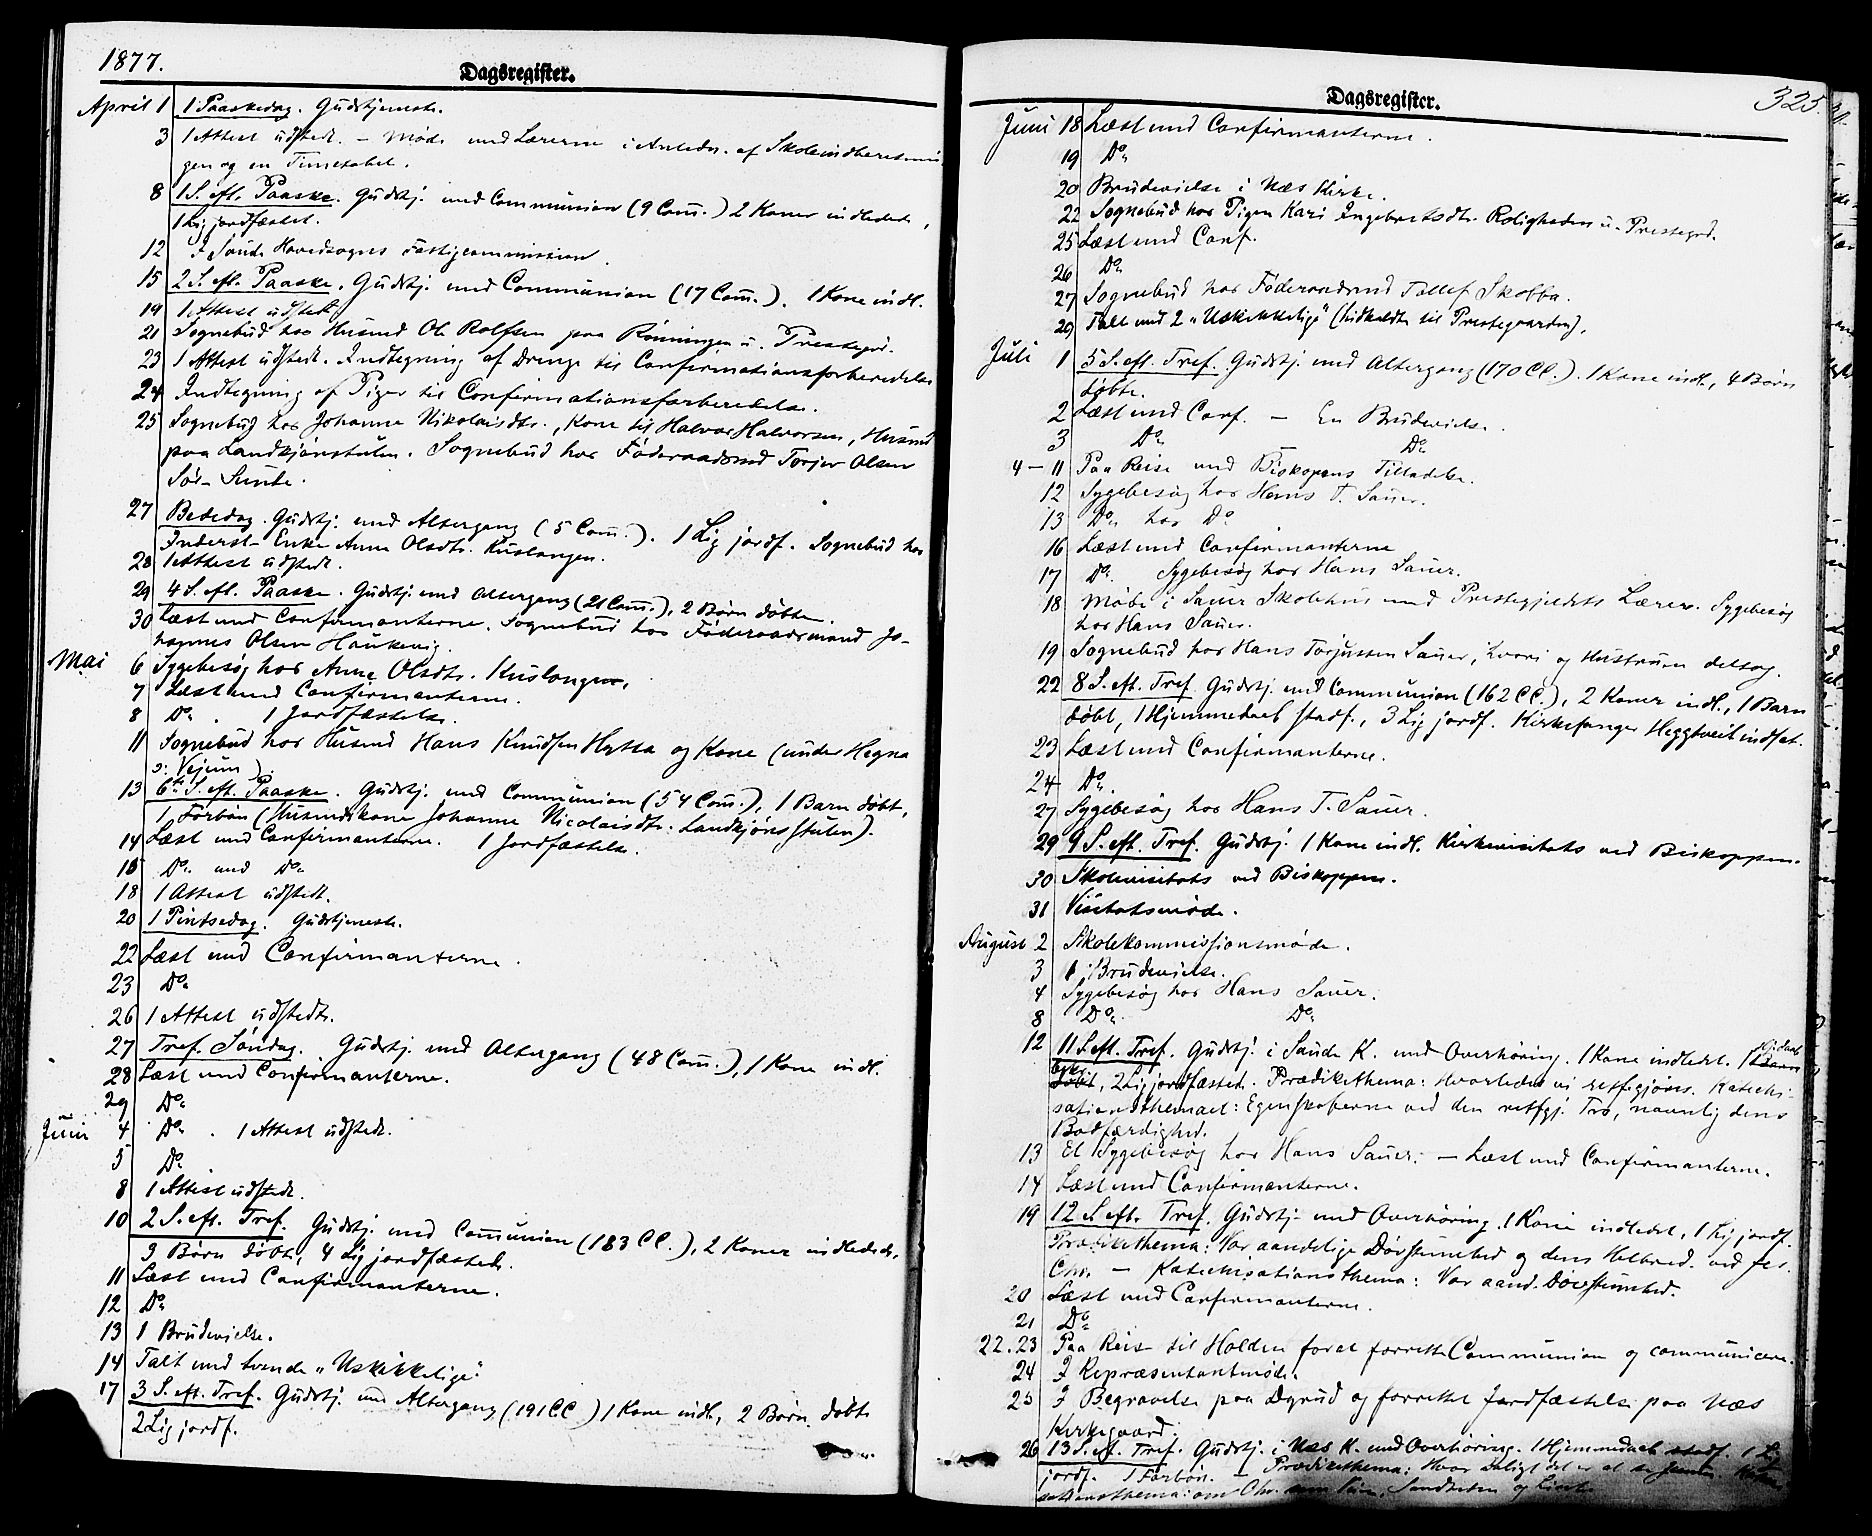 1877.
Dagsregister.
April 1 1 Paaskedag. Gudstjeneste.
3 1 Attest udstedt. – Møde med Lærerne i Anledn. af Skoleindberetnin
gen og en Timetabel.
8 1 S. eft. Paaske. Gudstj. med Communion (9 Com.) 2 Koner indledede,
1 Lig jordfæstet.
12 I Saude Hovedsogns Fattigcommission.
15 2 S. eft. Paaske. Gudstj. med Communion (17 Com.). 1 Kone indl.
19 1 Attest udstedt.
21 Sognebud hos Husmd Ole Rolfsen paa Rønningen u. Prestegrd.
23 1 Attest udstedt. Indtegning af Drenge til Confirmationsforberedelse
24 Indtegning af Piger til Confirmationsforberedelse.
25 Sognebud hos Johanne Nikolaisdtr., Kone til Halvor Halvorsen, Husmd
paa Landsjønstulen. Sognebud hos Føderaadsmd Torjer Olsen
Sør-
27 Bededag. Gudstj. med Altergang (5 Com.). 1 Lig jordf. Sognebud hos
Inderst-Enke Anne Olsdtr. Kuslangen.
28 1 Attest udstedt.
29 4 S. eft. Paaske. Gudstj. med Altergang (21 Com.), 2 Børn døbte.
30 Læst med Confirmanterne. Sognebud hos Føderaadsmand Jo-
hannes Olsen Haukevig.
Mai 6 Sygebesøg hos Anne Olsdtr. Kuslangen.
7 Læst med Confirmanterne.
8 Do. 1 Jordfæstelse.
11 Sognebud hos Husmd Hans Knudsen Hytta og Kone (under Hegna
ɔ: Vejum)
13 6te S. eft. Paaske. Gudstj. med Communion (54 Com.), 1 Barn døbt,
1 Forbøn (Husmdskone Johanne Nicolaisdtr. Landsjønsstulen).
14 Læst med Confirmanterne. 1 Jordfæstelse.
15 Do. med Do.
18 1 Attest udstedt.
20 1 Pintsedag. Gudstjeneste.
22 Læst med Confirmanterne.
23 Do.
26 1 Attest udstedt.
27 Tref. Søndag. Gudstj. med Altergang (48 Com.), 1 Kone indl.
28 Læst med Confirmanterne.
29 Do.
Juni 4 Do. 1 Attest udstedt.
5 Do.
8 1 Attest udstedt.
10 2 S. eft. Tref. Gudstj. med Communion (183 CC.), 2 Koner indledede,
3 Børn døbte, 4 Lig jordfæstede.
11 Læst med Confirmanterne.
12 Do.
13 1 Brudevielse.
14 Talt med tvende „Uskikkelige“
17 3 S. eft. Tref. Gudstj. med Altergang (191 CC) 1 Kone indl., 2 Børn døbte
2 Lig jordf.
Dagsregister. 325.
Juni 18 Læst med Confirmanterne.
19 Do.
20 Brudevielse i Næs Kirke.
22 Sognebud hos Pigen Kari Ingebretsdtr. Roligheden u. Prestegrd.
25 Læst med Conf.
26 Do.
27 Sognebud hos Føderaadsmd Tollef Skobba.
29 Talt med 2 „Uskikkelige“ (indkaldte til Prestegaarden).
Juli 1 5 S. eft. Tref. Gudstj. med Altergang (170 CC.). 1 Kone indl., 4 Børn
døbte.
2 Læst med Conf. – En Brudevielse.
3 Do. Do.
4–11 Paa Reise med Biskopens Tilladelse.
12 Sygebesøg hos Hans T. Sauer.
13 Do. hos Do.
16 Læst med Confirmanterne
17 Do. Sygebesøg hos Hans Sauer.
18 Møde i Sauer Skolehus med Prestegjeldets Lærere. Sygebesøg
hos Hans Sauer.
19 Sognebud hos Hans Torjussen Sauer, hvori og Hustruen deltog.
22 8 S. eft. Tref. Gudstj. med Communion (162 CC.), 2 Koner indl., 1 Barn
døbt, 1 Hjemmedaab stadf., 3 Lig jordf. Kirkesanger Heggtveit indsat.
23 Læst med Confirmanterne.
24 Do.
27 Sygebesøg hos Hans T. Sauer.
29 9 S. eft. Tref. Gudstj. 1 Kone indl. Kirkevisitats ved Biskoppen.
30 Skolevisitats ved Biskoppen.
31 Visitatsmøde.
August 2 Skolekommissionsmøde.
3 1 Brudevielse.
4 Sygebesøg hos Hans Sauer.
8 Do. Do.
12 11 S. eft. Tref. Gudstj. i Saude K. med Overhøring. 1 Kone indledet. 1 Barn
døbt, 2 Lig jordfæstet. Prædikethema: Hvorledes vi retfegjøres. Katechi-
sationsthemaet: Egenskaberne ved den retfgj. Tro, navnlig dens
Bodfærdighed.
13 Et Sygebesøg hos Hans Sauer. – Læst med Confirmanterne.
14 Læst med Confirmanterne.
19 12 S. eft. Tref. Gudstj. med Overhøring. 1 Kone indledet, 1 Lig jordf.
Prædikethema: Vor aandelige Døvstumhed og dens Helbred. ved Jes.
Chr. – Katechisationsthema: Vor aand. Døvstumhed.
20 Læst med Confirmanterne.
21 Do.
22. 23 Paa Reise til Holden forat forrette Communion og communicere.
24 I Repræsentantmøde.
25 I Begravelse paa Dyrud og forrettet Jordfæstelse paa Næs
Kirkegaard.
26 13 S. eft. Tref. Gudstj. i Næs K. med Overhøring. 1 Hjemmedaab stadf. 1 Lig
jordf. 1 Forbøn. – Prædikethema: Hvor saligt det er at
sationsthema: om Chr. som Veien, Sandheden og Livet.